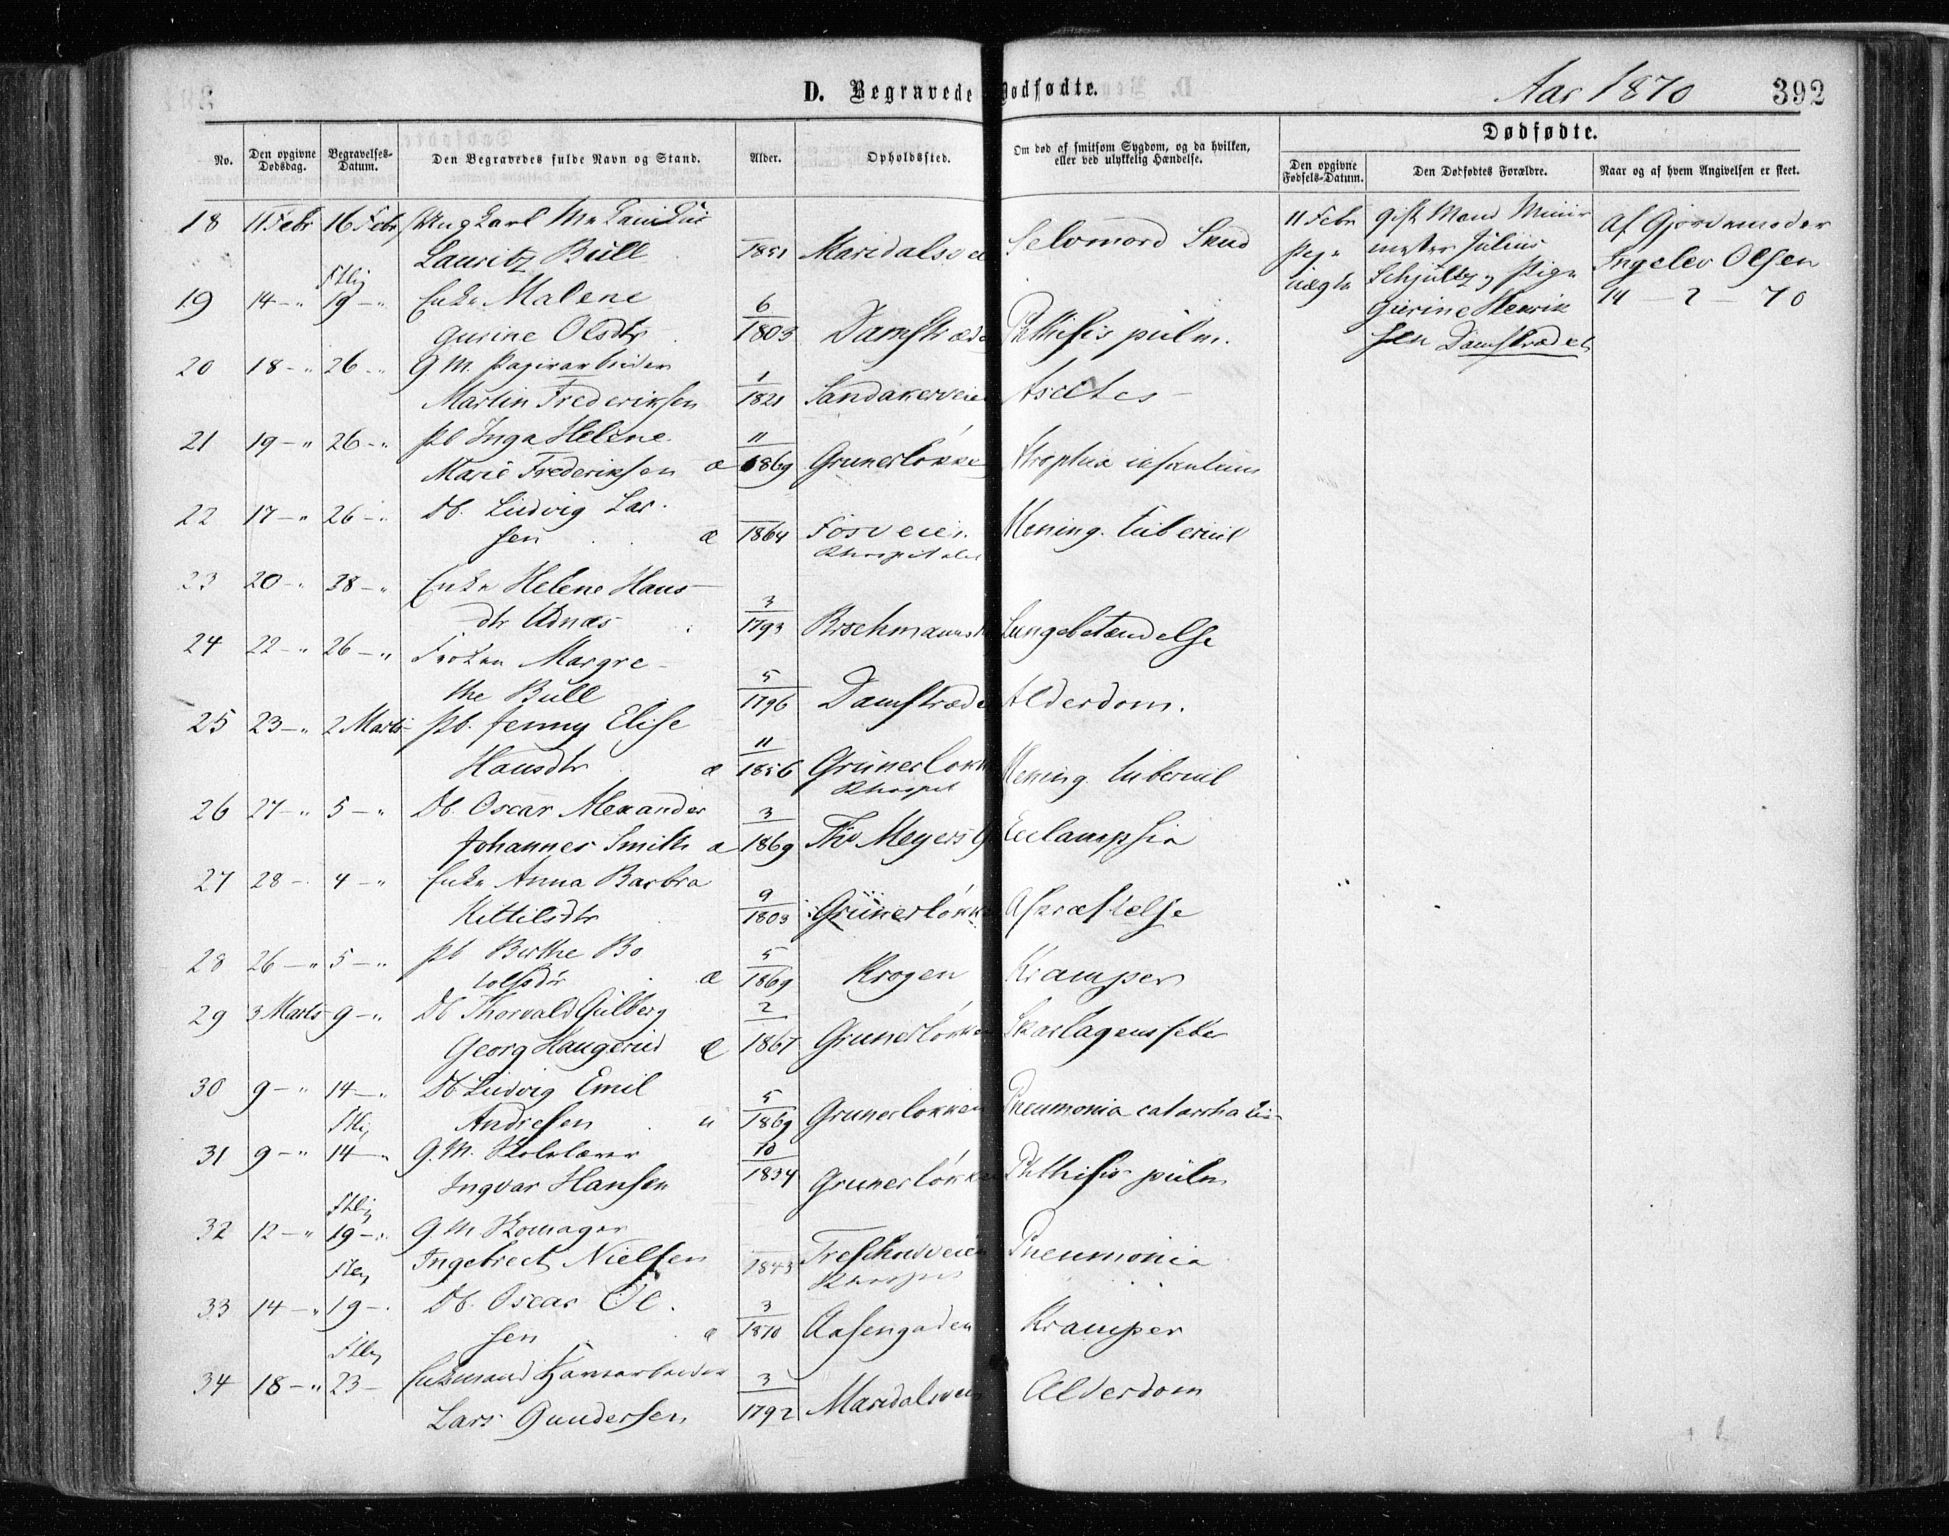 D. Begravede Dødfødte.
Aar 1870
392
No.
Den opgivne Dødsdag.
Begravelses-Datum.
Den Begravedes fulde Navn og Stand.
Alder.
Opholdssted.
Om død af smitsom Sygdom, og da hvilken, eller ved ulykkelig Hændelse.
Dødfødte.
Den opgivne Fødsels-Datum.
Den Dødfødtes Forældre.
Naar og af hvem Angivelsen er skeet.
18 11 Febr 16 Febr Ung Karl
Lauritz Bull 1851 Maridalsvei Selvmord Skud
19 14 – " 19 – " Enke Malene
Gurine Olsdtr 6/1803 Damstræde Phthisis pulm.
20 18 – " 26 – " G. M. Papirarbeider
Martin Frederiksen 1/1821 Sandakerveien Ascites
21 19 – " 26 – " Pb Inga Helene
Marie Frederiksen æ 11/1869 Grunerløkke Atrophia infantum
22 17 – " 26 – " Db. Ludvig Lar-
sen æ 1864 Fosveien Mening. tubercul
Rhospitalet
23 20 – " 28 – " Enke Helene Hans
dtr Udnæs 3/1793 Lungebetændelse
24 22 – " 26 – " Frøken Margre-
the Bull 5/1796 Damstræde Alderdom.
25 23 – " 2 Marts Pb. Jenny Elise
Hansdtr æ 11/1856 Grünerløkk Mening. tubercul
Rhospit
26 27 – " 5 – " Db. Oscar Alexander
Johannes Smith æ 3/1869 Thv Meyers G Eclampsia
27 28 – " 4 – " Enke Anna Barbra
Kittilsdtr 9/1803 Grünerløkke Afkræftelse
28 26 – " 5 – " Pb Berthe Bo
tolfsdtr æ 5/1869 Krogen Kramper
29 3 Marts 9 – " Db Thorvald Gulberg
Georg Haugerud æ 2/1867 Grunerløkken Skarlagensfeber
30 9 – " 14 – " Db Ludvig Emil
Andresen u 5/1869 Grunerløkken Pneumonia catarrhalis
31 9 – " 14 – " G. M. Skolelærer
Ingvar Hansen 10/1834 Grunerløkke Phthisis pulm
32 12 – " 19 – " G M Skomager
Ingebrect Nielsen 1843 Treschowveien Pneumonia
Rhospit
33 14 – " 19 – " Db. Oscar Ol
sen æ 3/1870 Aasengaden Kramper
34 18 – " 23 – Enkemand
Lars Gundersen 3/1792 Maridalsvei Alderdom
11 Febr
Pige
uægte
gift Mand Muur
mester Julius
Schjultz, Pige
Gurine Henrik
sen Damstrædet
Af Gjordemoder
Ingelev Olsen
14 – 2 – 70